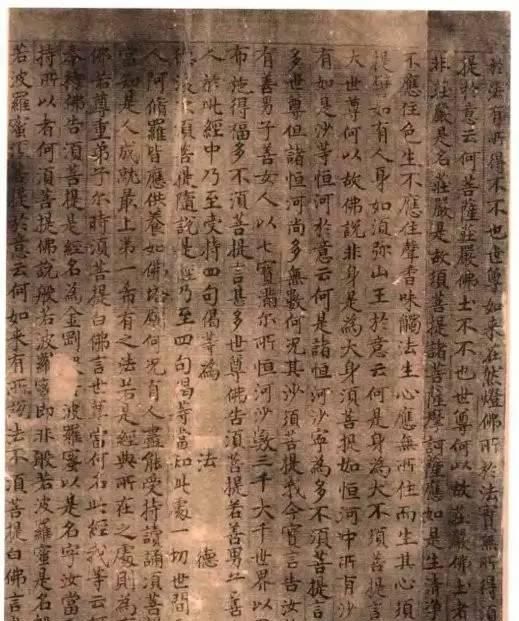 於法有所得不不也世尊如来在然燈佛所於法實無所得須
提於意云何菩薩莊嚴佛土不不也世尊何以故莊嚴佛土者
非莊嚴是名莊嚴是故須菩提諸菩薩摩訶薩應如是生清淨
不應住色生不應住聲香味觸法生心應無所住而生其心須
提譬如有人身如須弥山王於意云何是身為大不須菩提言
大世尊何以故佛說非身是為大身須菩提如恒河中所有沙
有如是沙等恒河於意云何是諸恒河沙寧為多不須菩提言
多世尊但諸恒河尚多無數何况其沙須菩提我今實言告汝
有善男子善女人以七寶滿尔所恒河沙數三千大千世界以
布施得福多不須菩提言甚多世尊佛告須菩提若善男子善
人於此經中乃至受持四句偈等為 法 德
須菩提隨說是經乃至四句偈等當知此處一切世間
人阿脩羅皆應供養如佛塔廟何况有人盡能受持讀誦須菩
當知是人成就最上第一希有之法若是經典所在之處則為
佛若尊重弟子尔時須菩提白佛言世尊當何名此經我等云
奉持佛告須菩提是經名為金剛 波羅蜜以是名字汝當
持所以者何須菩提佛說般若波羅蜜即非般若波羅蜜是名
若波羅蜜須菩提於意云何如来有所說法不須菩提白佛言